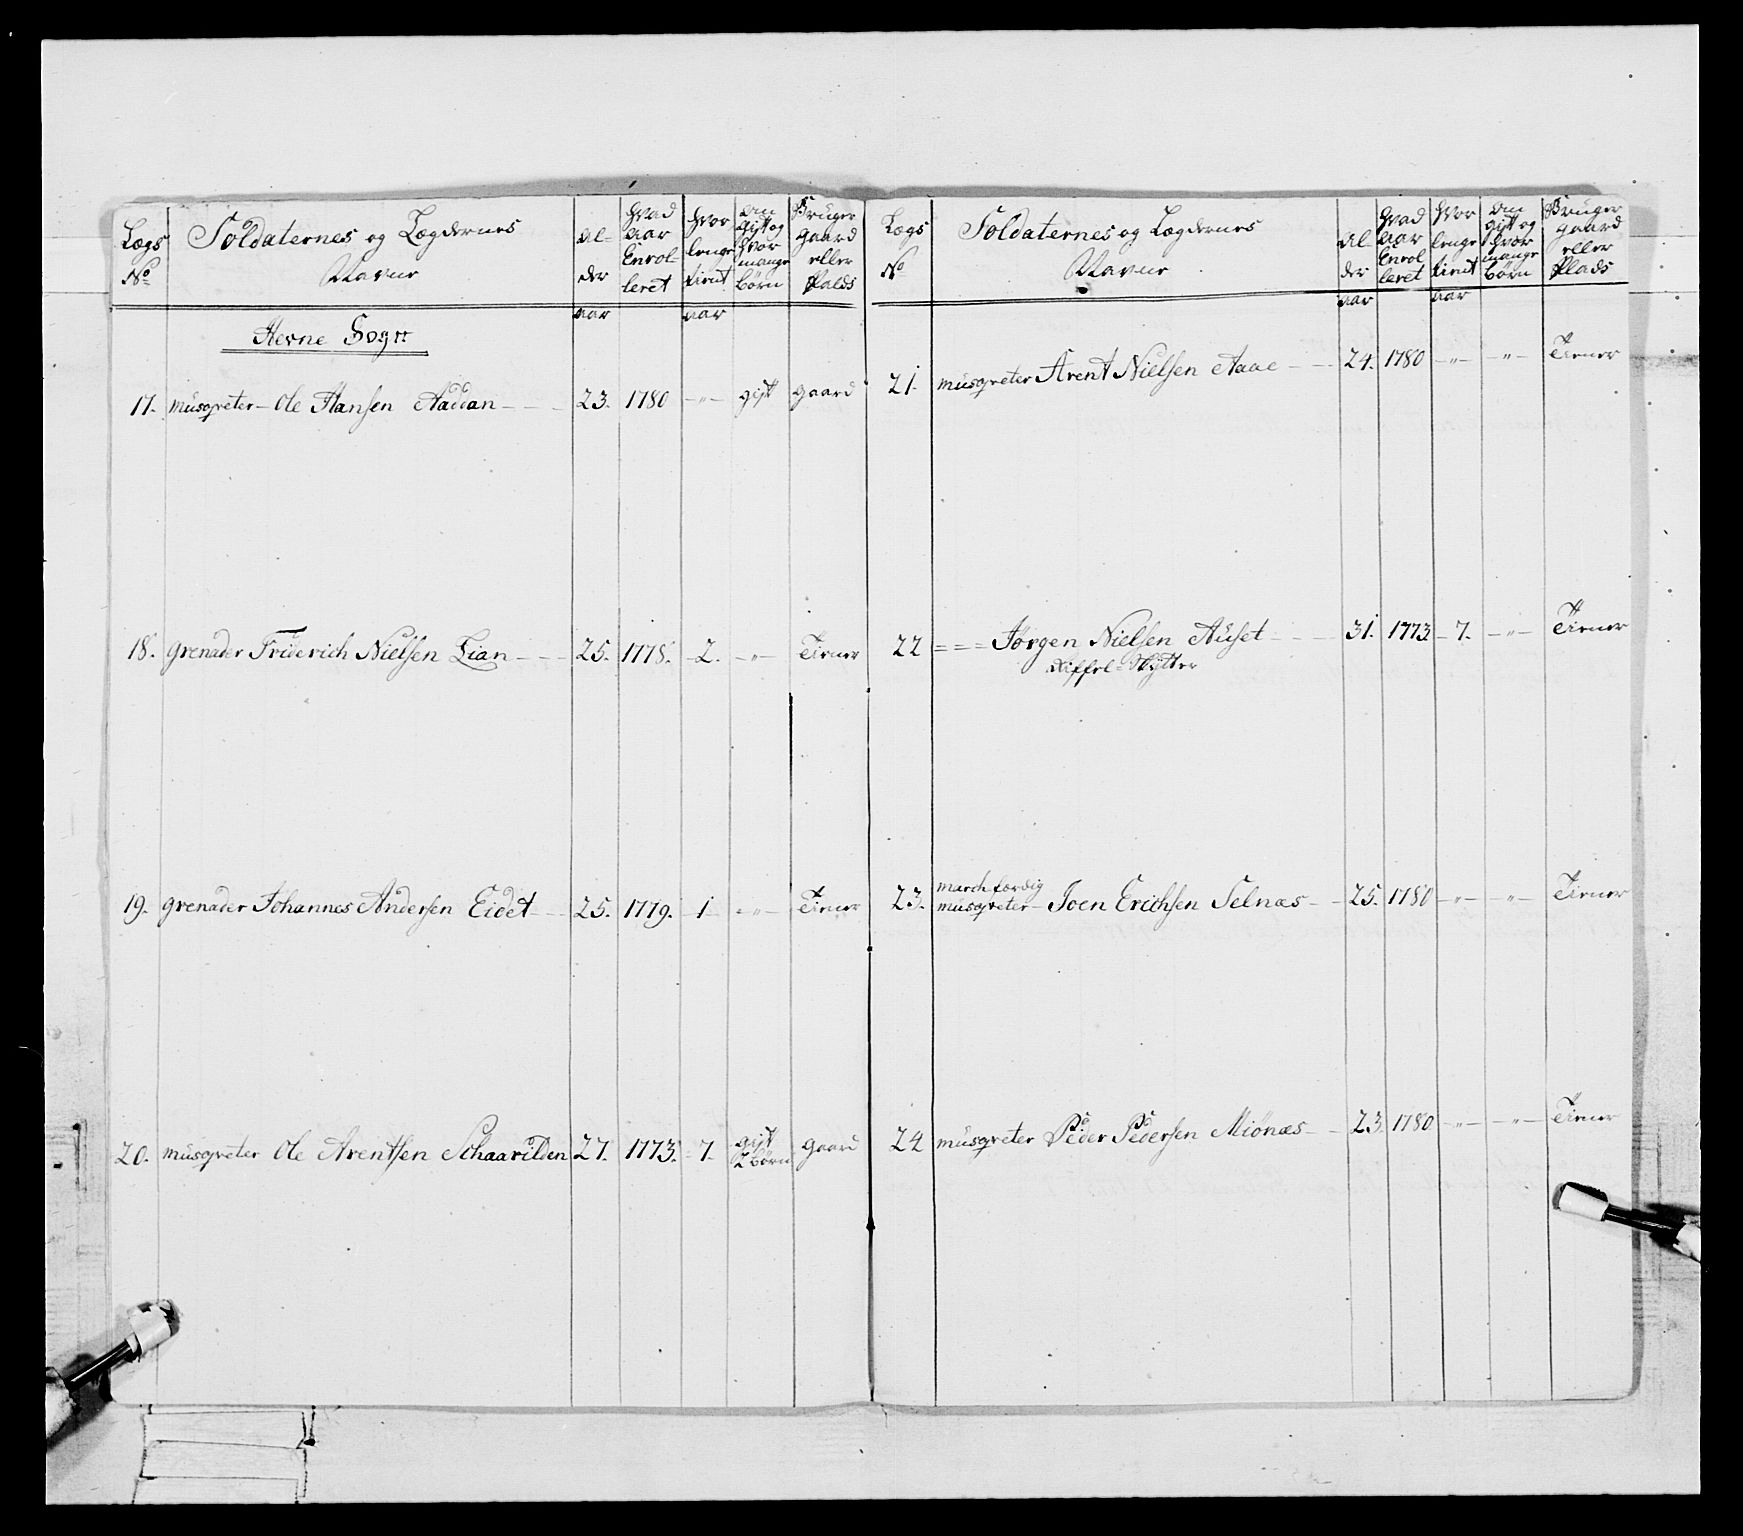 Lægs No
Soldaternes og Lægdernes Navne
Al- der
hvad Aar Enrol- leret
hvor lenge tient
om gift og hvor mange børn
Bruger gaard eller Plads
aar aar
Hevne Sogn
17. musqveter - Ole Hansen Aaddan - - - 23. 1780 - „ - gift gaard
18. grenader Friderich Nielsen Lian - - - 25. 1778. - 2. - „ - Tiener
19. grenader Johannes Andersen Eidet - - 25. 1779. - 1 - „ - Tiener
20. musqveter Ole Arentsen Schaarilden 27. 1773. - 7. gift 2 børn gaard
Lægs No
Soldaternes og Lægdernes Navne
Al- der
hvad Aar Enrol- leret
hvor lenge tient
om gift og hvor mange børn
Bruger gaard eller Plads
aar aar
21. musqveter Arent Nielsen Aaae - - - 24. 1780 - „ - - „ - Tiener
22 = = = Jørgen Nielsen Auset - - - 31. 1773 - 7. - „ - Tiener
Riffel-Skytter
march færdig
23. musqveter - Joen Erichsen Selnæs - - 25. 1780 - „ - - „ - Tiener
24 musqveter Peder Pedersen Miönæs - - 23. 1780 - „ - - „ - Tiener